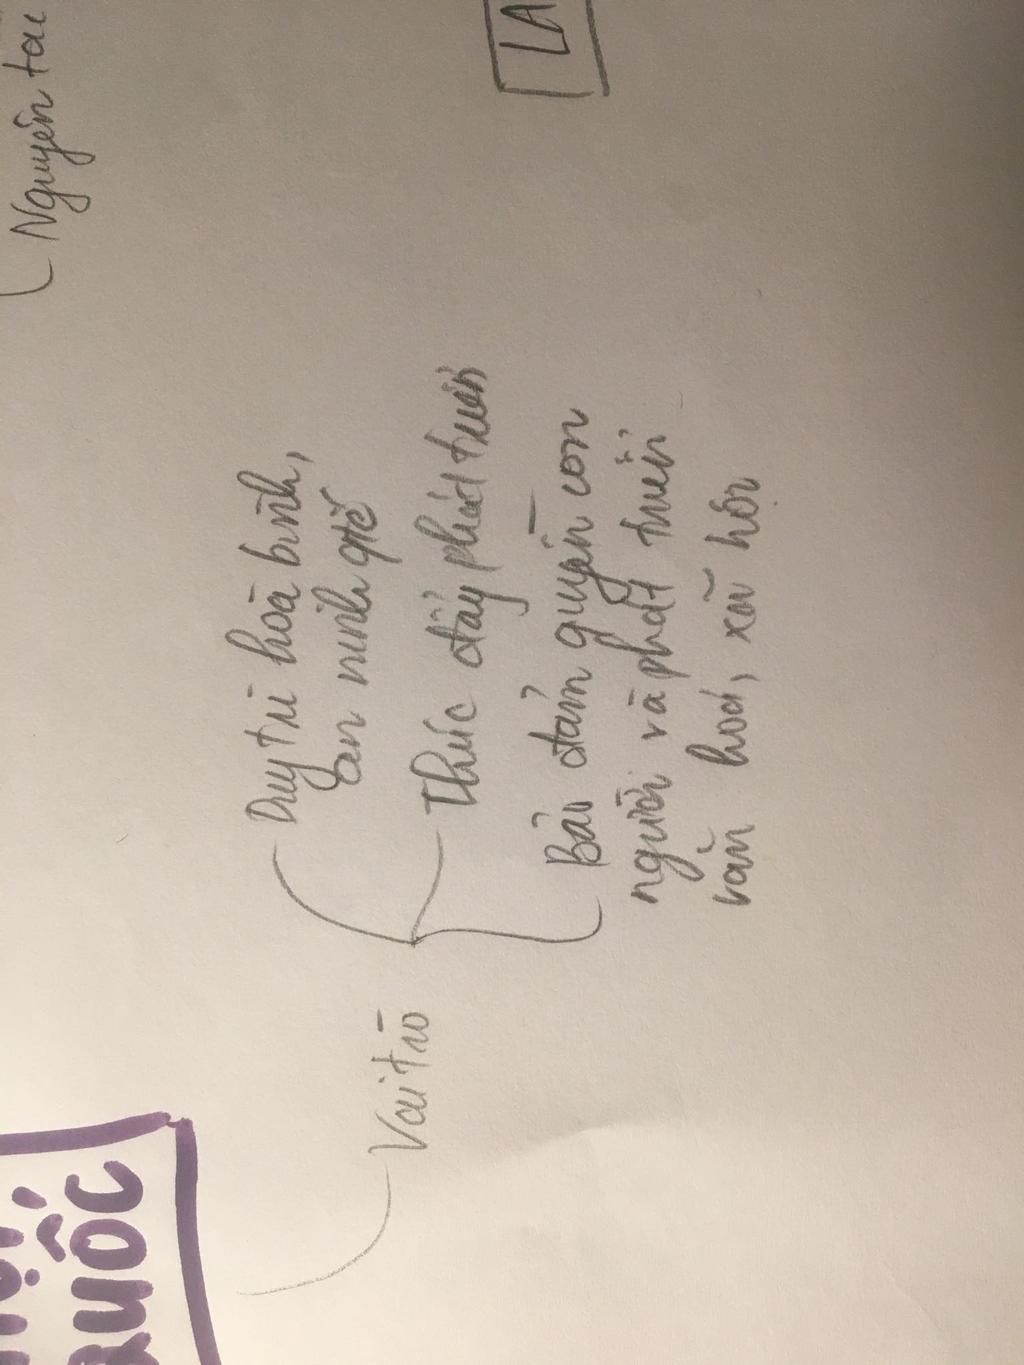 Nguyên tắc
LA
QUỐC
Vai trò
Duy trì hoà bình,
an ninh qtế
Thúc đẩy phát triển
Bảo đảm quyền con
người và phát triển
văn hoá, xã hội